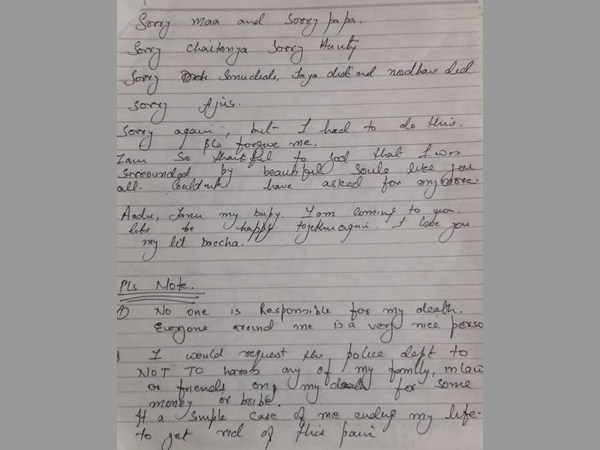 Sorry maa and Sorry papa.
Sorry Chaitanya Sorry Aunty
Sorry Sonudidi, Jaya didi and
Sorry Ajit.
Sorry again, but I had to do this.
Pls forgive me.
I am So thankful to God that I was
Surrounded by beautiful Souls like you
all. Couldn't have asked for anymore
my baby. I am coming to you.
lets be happy together again. I love you
my lil baccha.
Pls Note.
1) No one is Responsible for my death.
Everyone around me is a very nice perso
I would request the police dept to
NOT TO harass any of my family, inlaw
or friends on my death for some
money or bribe.
It a simple case of me ending my life
to get rid of this pain